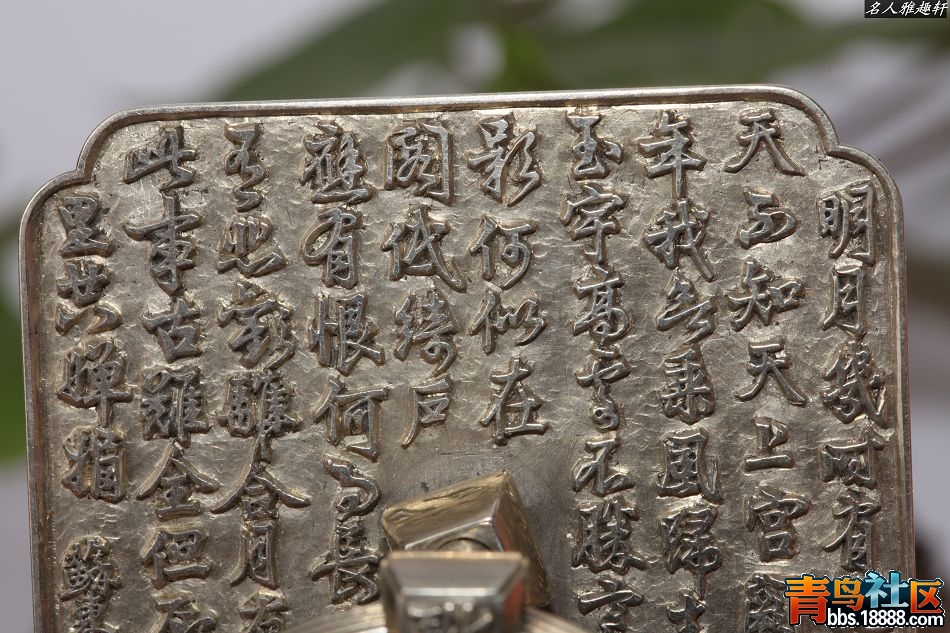 明月幾时有
天不知天上宫
年我欲乘風歸
玉宇高處不勝
影何似在
閣低綺戶
應有恨何事長
有悲歡離合月有
此事古難全但
里共嬋娟 蘇
名人雅趣轩
青鸟社区
bbs.18888.com